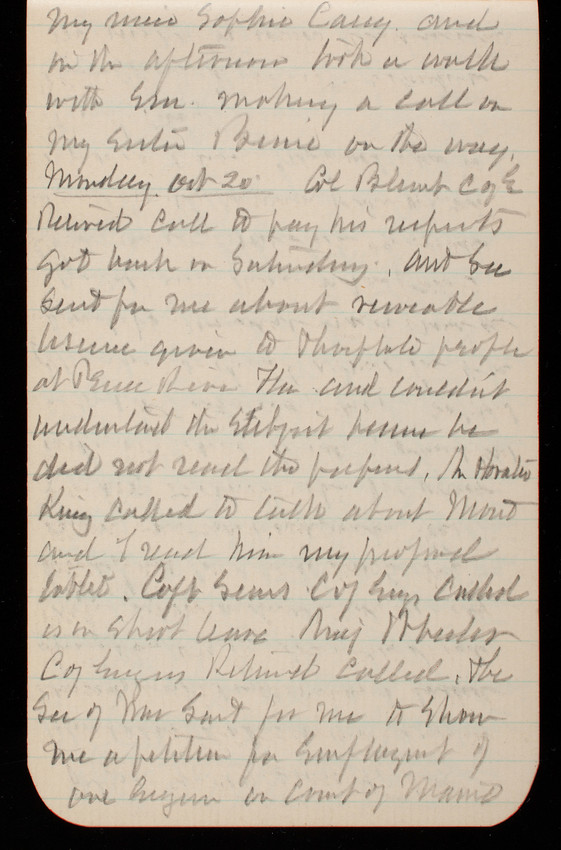 my niece Sophie Casey. and
in the afternoon took a walk
with Em. making a call on
my sister Bessie on the way.
Monday Oct 20 Col Blunt C of E
Retired call to pay his respects
got back on Saturday. and Sec
sent for me about revocable
license given to people
at River and couldn't
understand the subject because he
did not read the papers. Mr Horatio
King called to talk about Mont
and I read him my proposed
tablet. Capt Sears C of Engs called
is on short leave Maj Wheeler
C of Engrs Retired called. The
Sec of War sent for me to show
me a petition for employment of
one Engineer on Count of